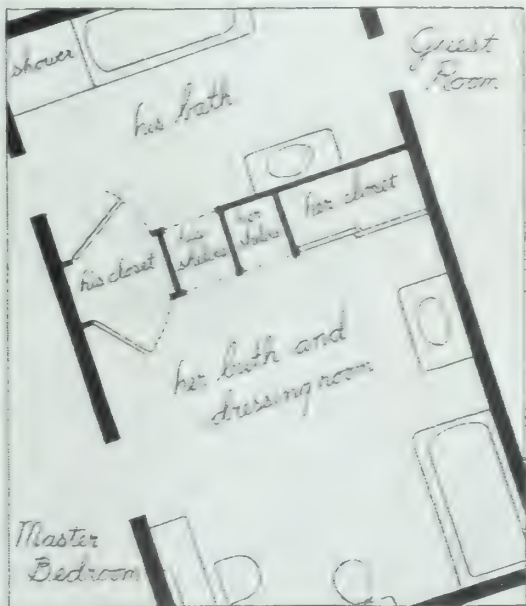 shower
Guest
Room
his bath
his closet
his
shelves
her
shelves
her closet
her bath and
dressing room
Master
Bedroom